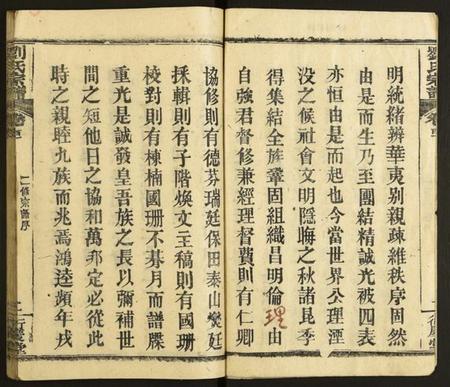 劉氏宗譜
卷首
明統緒辨華夷別親疎維秩序固然
由是而生乃至團結精誠光被四表
亦恒由是而起也今當世界公理湮
没之候社會文明隱晦之秋諸昆季
得集結全族鞏固組織昌明倫理由
自強君督修兼經理督費則有仁卿
協修則有德芬瑞廷保田泰山爕廷
採輯則有子階煥文王稿則有國珊
校對則有棟楠國珊不朞月而譜牒
重光是誠發皇吾族之長以彌補世
間之短他日之協和萬邦定必從此
時之親睦九族而兆焉鴻逵蘋年戌
劉氏宗譜
二修宗譜序